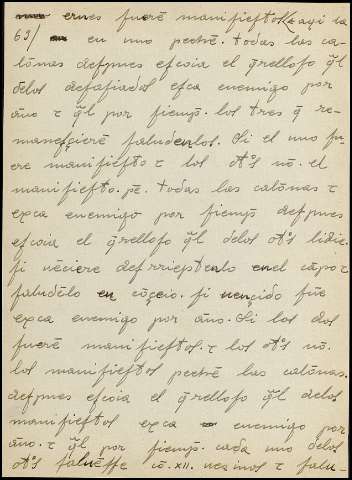 ernes fuerē manifieſtos ⁊ aqi la
63/ en uno pectrē. todas las ca-
lōnas deſpues eſcoia el q̄relloſo q̄l
delos deſafiados eſca enemigo por
año ⁊ q̄l por ſiemp̄. los tres q̄ re-
maneſçierē ſaludenlos. Si el uno fu-
ere manifieſto ⁊ los ot͛s nō. el
manifieſto. pē. todas las calōnas ⁊
exca enemigo por ſiemp̄ deſpues
eſcoia el q̄relloſo q̄l delos ot͛s lidie.
ſi uēciere deſrrieptenlo enel cāpo ⁊
ſaludēlo en cōçeio. ſi uençido fue
exca enemigo por año. Si los dos
fuerē manifieſtos. ⁊ los ot͛s nō.
los manifieſtos pectrē las calōnas.
deſpues eſcoia el q̄relloſo q̄l delos
manifieſtos exca enemigo por
año. ⁊ q̄l por ſiemp̄. cada uno delos
ot͛s ſaluēſſe cō .XII. uezinos ⁊ ſalu-